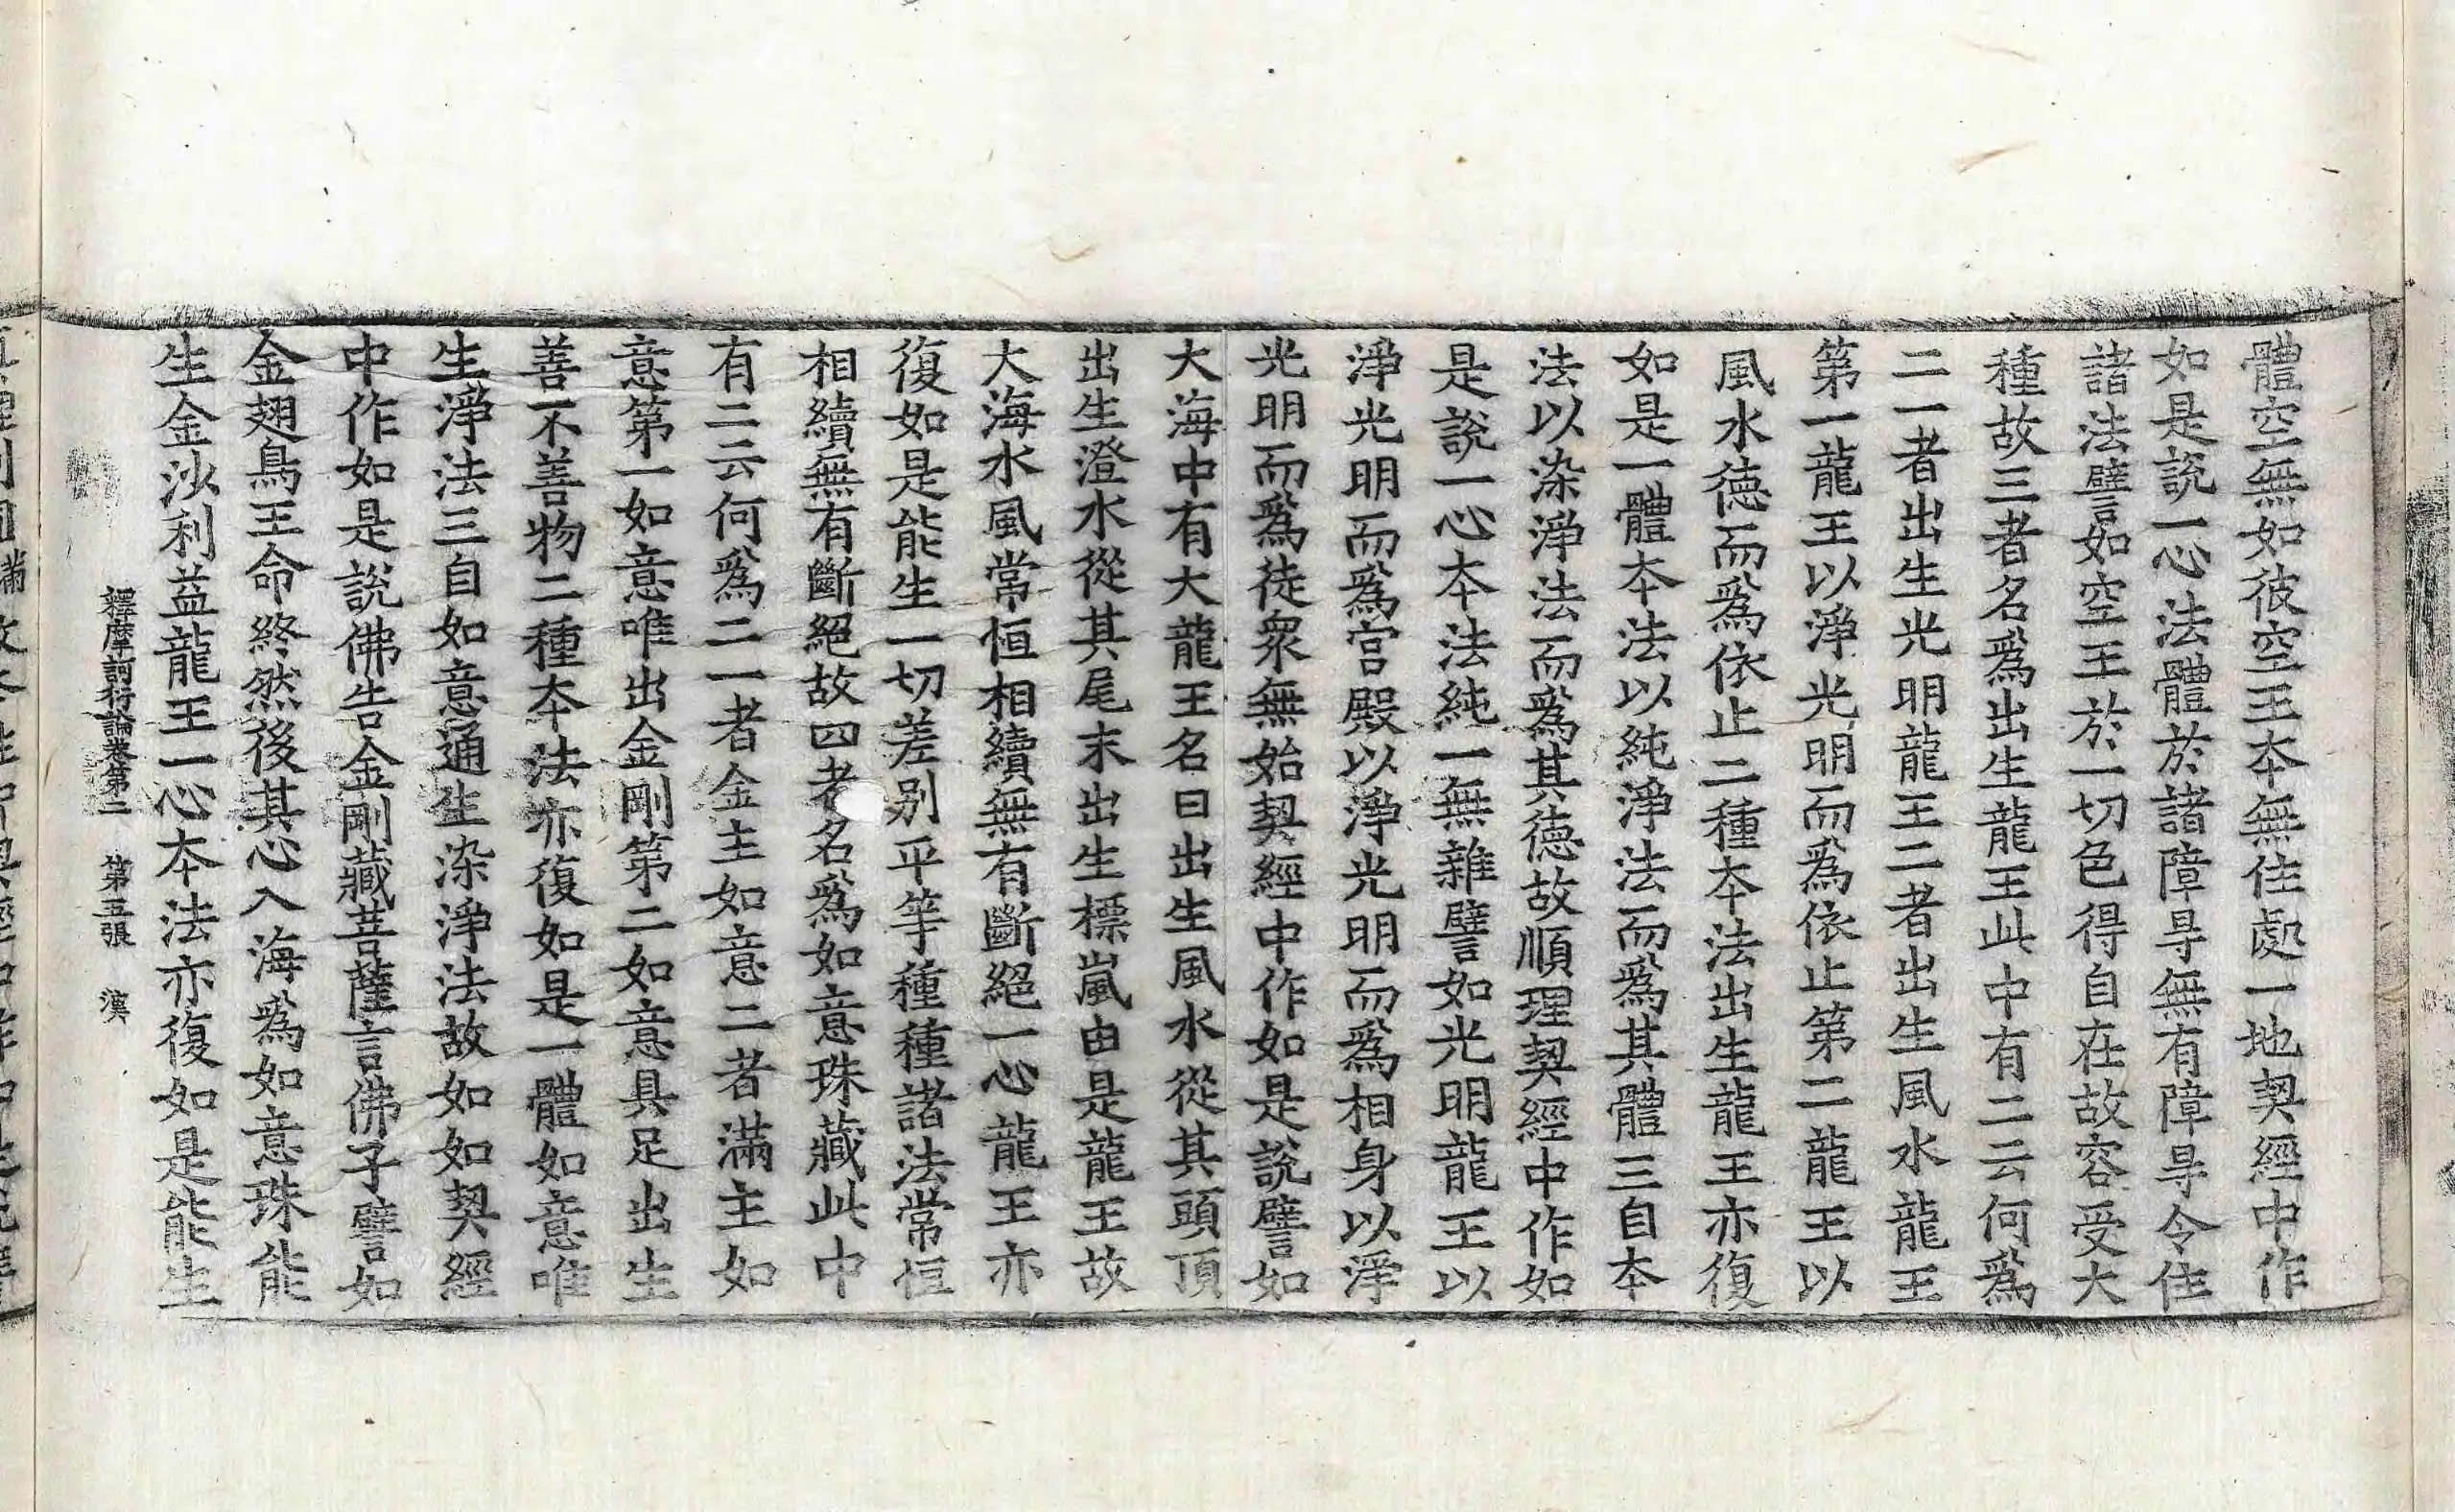 體空無如彼空王本無住處一地契經中作
如是說一心法體於諸障㝵無有障㝵令住
諸法譬如空王於一切色得自在故容受大
種故三者名爲出生龍王此中有二云何爲
二一者出生光明龍王二者出生風水龍王
第一龍王以淨光明而爲依止第二龍王以
風水徳而爲依止二種本法出生龍王亦復
如是一體本法以純淨法而爲其體三自本
法以染淨法而爲其徳故順理契經中作如
是說一心本法純一無雜譬如光明龍王以
淨光明而爲宮殿以淨光明而爲相身以淨
光明而爲徒衆無始契經中作如是說譬如
大海中有大龍王名曰出生風水從其頭頂
出生澄水從其尾末出生標嵐由是龍王故
大海水風常恒相續無有斷絕一心龍王亦
復如是能生一切差别平等種種諸法常恒
相續無有斷絕故四者名爲如意珠藏此中
有二云何爲二一者金主如意二者滿主如
意第一如意唯出金剛第二如意具足出生
善不善物二種本法亦復如是一體如意唯
生淨法三自如意通生染淨法故如如契經
中作如是說佛告金剛藏菩薩言佛子譬如
金翅鳥王命終然後其心入海爲如意珠能
生金沙利益龍王一心本法亦復如是能生
釋摩訶衍論卷第二 第五張 漢